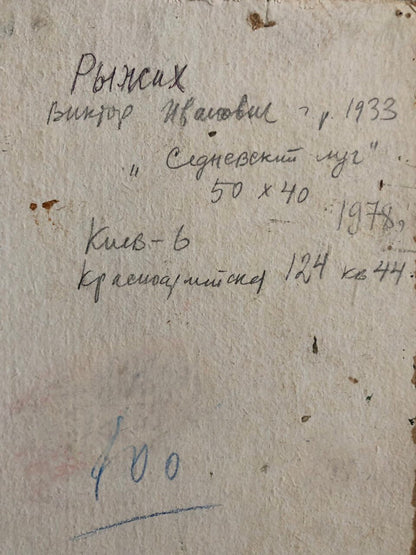 Рыжих
Виктор Иванович г.р. 1933
"Седневский луг"
50 х 40
1978,
Киев-6
Красноармейская 124 кв 44